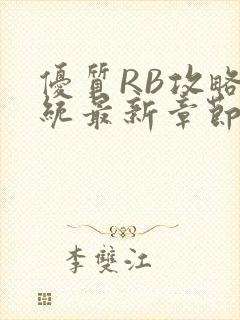 優質RB攻略
統最新章節
李雙江